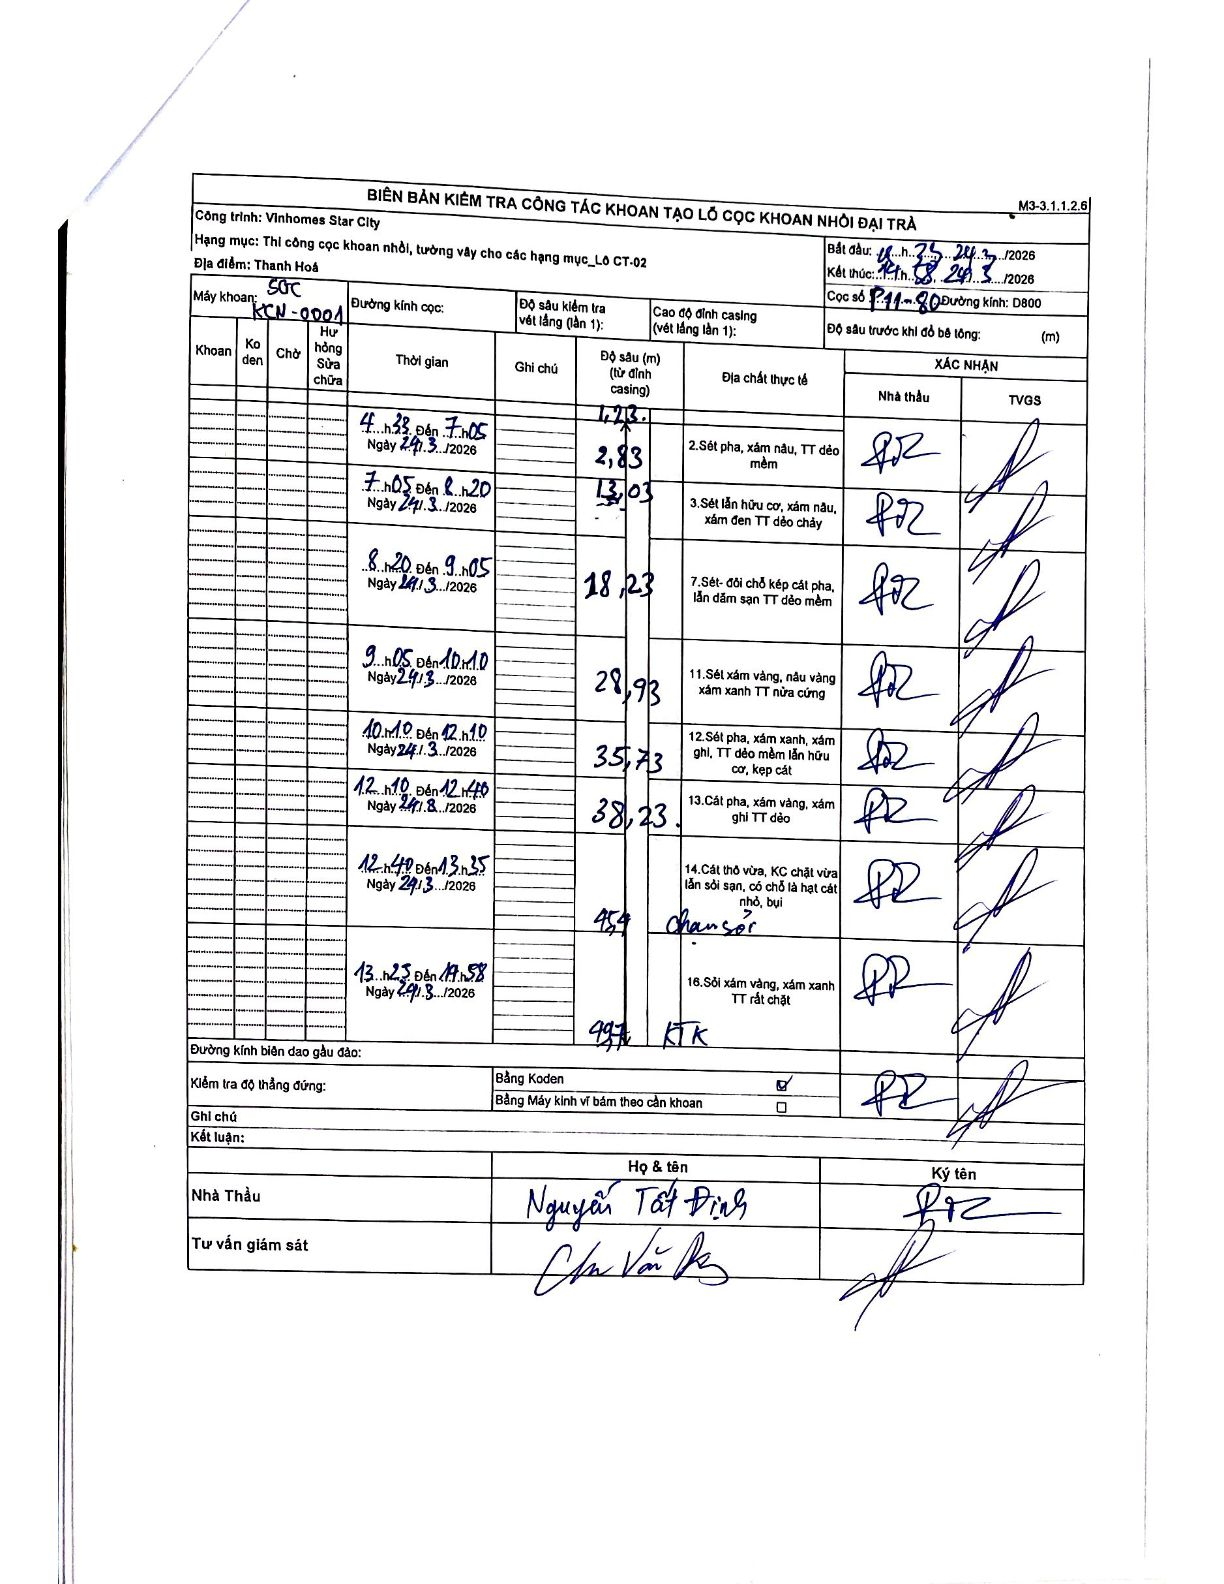 BIÊN BẢN KIỂM TRA CÔNG TÁC KHOAN TẠO LỖ CỌC KHOAN NHỒI ĐẠI TRÀ
M3-3.1.1.2.6
Công trình: Vinhomes Star City
Hạng mục: Thi công cọc khoan nhồi, tường vây cho các hạng mục_Lô CT-02
Địa điểm: Thanh Hoá
Bắt đầu: h 24.3../2026
Kết thúc: 14.h.58. 24.3.../2026
Máy khoan: SGC KCN-0001
Đường kính cọc:
Độ sâu kiểm tra vét lắng (lần 1):
Cao độ đỉnh casing (vét lắng lần 1):
Cọc số P11-80 Đường kính: D800
Độ sâu trước khi đổ bê tông: (m)
Khoan
Ko den
Chờ
Hư hỏng Sửa chữa
Thời gian
Ghi chú
Độ sâu (m) (từ đỉnh casing)
Địa chất thực tế
XÁC NHẬN
Nhà thầu
TVGS
1,23.
4...h33. Đến .7..h05
Ngày 24/.3.../2026
2,83
2.Sét pha, xám nâu, TT dẻo mềm
7...h05 Đến 8..h20
Ngày 24/.3.../2026
13,03
3.Sét lẫn hữu cơ, xám nâu, xám đen TT dẻo chảy
8...h20. Đến .9..h05
Ngày 24/.3.../2026
18,23
7.Sét- đôi chỗ kép cát pha, lẫn dăm sạn TT dẻo mềm
9...h05. Đến 10.h10
Ngày 24/.3.../2026
28,93
11.Sét xám vàng, nâu vàng xám xanh TT nửa cứng
10.h10 Đến 12.h10
Ngày 24/.3.../2026
35,73
12.Sét pha, xám xanh, xám ghi, TT dẻo mềm lẫn hữu cơ, kẹp cát
12..h10. Đến 12.h40
Ngày 24/.3.../2026
38,23.
13.Cát pha, xám vàng, xám ghi TT dẻo
12..h40 Đến 13.h35
Ngày 24/.3.../2026
14.Cát thô vừa, KC chặt vừa lẫn sỏi sạn, có chỗ là hạt cát nhỏ, bụi
45,4
chạm sỏi
13...h25. Đến 14.h58
Ngày 24/.3.../2026
16.Sỏi xám vàng, xám xanh TT rất chặt
KTK
Đường kính biên dao gầu đào:
Kiểm tra độ thẳng đứng:
Bằng Koden ☑
Bằng Máy kinh vĩ bám theo cần khoan ☐
Ghi chú
Kết luận:
Họ & tên
Ký tên
Nhà Thầu
Nguyễn Tất Định
Tư vấn giám sát